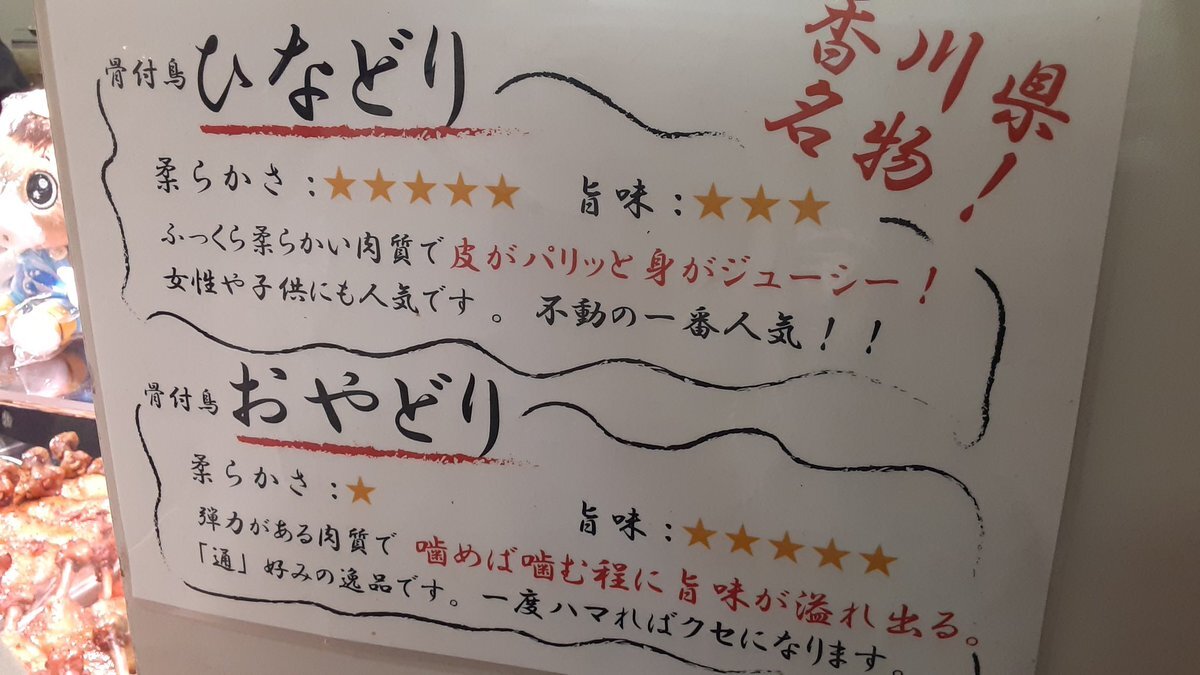 香川県
名物！
骨付鳥 ひなどり
柔らかさ：★★★★★ 旨味：★★★
ふっくら柔らかい肉質で 皮がパリッと 身がジューシー！
女性や子供にも人気です。 不動の一番人気！！
骨付鳥 おやどり
柔らかさ：★ 旨味：★★★★★
弾力がある肉質で 噛めば噛む程に旨味が溢れ出る。
「通」好みの逸品です。一度ハマればクセになります。